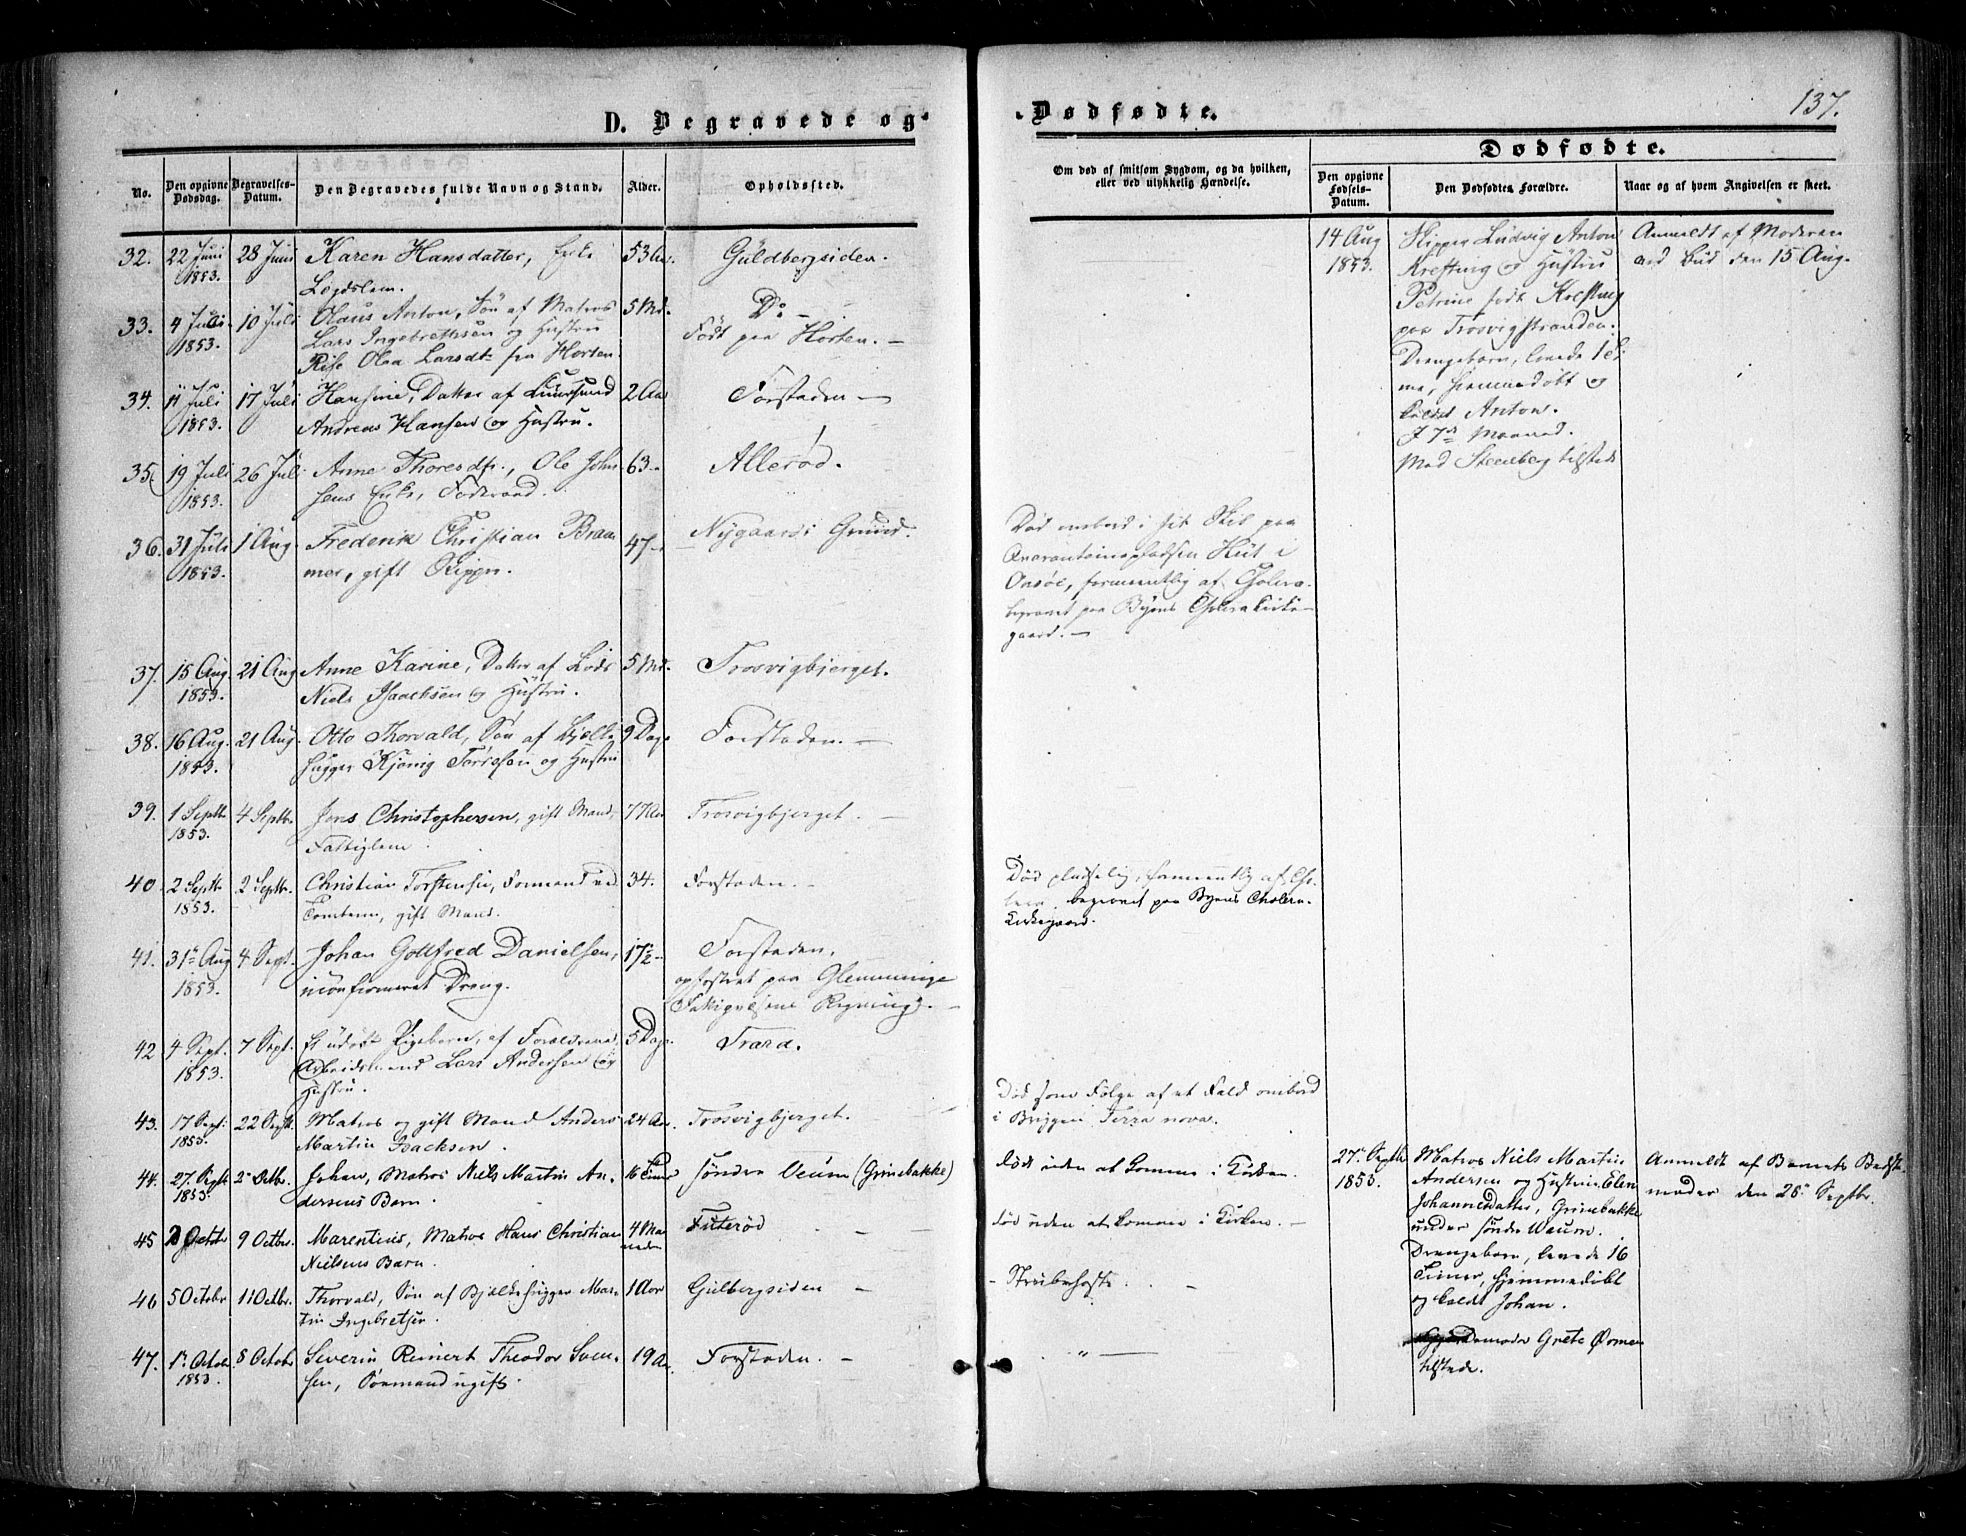 D. Begravede og
No.
Den opgivne Dødsdag.
Begravelses-Datum.
Den Begravedes fulde Navn og Stand.
Alder.
Opholdssted.
32. 22 Juni 1853. 28 Juni Karen Hansdatter, Enke 53 Aar Guldbergsiden.
Lægdslem.
33. 4 Juli 1853. 10 Juli Olaus Anton, Søn af Matros 5 Md. Do
Lars Ingebrethsen og Hustru Født paa Horten.
Olea Larsdt. fra Horten.
34. 11 Juli 1853. 17 Juli Hansine, Datter af 2 Aar Forstaden
Andreas Hansen og Hustru.
35. 19 Juli 1853. 26 Juli Anne Thoresdtr., Ole John- 63 Allerød.
sens Enke, Føderaad.
36. 31 Juli 1853. 1 Aug. Frederik Christian Bram- 47 Nygaards Grund.
mer, gift Skipper.
37. 15 Aug. 1853. 21 Aug Anne Karine, Datter af Lods 5 Md. Trosvigbjerget.
Niels Isaachsen og Hustru.
38. 16 Aug. 1853. 21 Aug. Otto Thorvald, Søn af Bjælke- 9 Dage Forstaden.
hugger Tørresen og Hustru
39. 1 Septbr 1853. 4 Septbr. Jens Christophersen, gift Mand, 77 Aar Trosvigbjerget.
Fattiglem.
40. 2 Septbr 1853. 2 Septbr. Christian Torstensen, Formand ved 34. Forstaden.
Tomten, gift Mand.
41. 31te Aug 1853. 4 Sept. Johan Gottfred Danielsen, 17½ Forstaden,
uconfirmeret Dreng. opfostret paa Glemminge
Fattigvæsens Regning.
42 4 Sept. 1853. 7 Sept. Et udøbt Pigebarn, af Forældrene 5 Dage Trara.
Arbeidsmand Lars Andersen og
Hustru.
43. 17 Sept. 1853. 22 Septb. Matros og gift Mand Anders 24 Aar Trosvigbjerget.
Martin Isacksen.
44. 27. Septb 1853. 2 Octbr. Johan, Matros Niels Martin An- 16 Timer søndre Veum (Grinebakke)
dersens Barn
45 Octbr 9 Octbr. Marentius, Matros Hans Christian 4 Maaneder Futerød
Nielsens Barn.
46 5 Octobr 11 Octbr. Thorvald, Søn af Bjælkehugger Mar- 1 Aar Gulbergsiden
tin Ingebretsen.
47. 1te Octbr 1853. 8 Octobr Severin Reinert Theodor Sven- 19 Aar Forstaden.
sen, Sømand ugift.
Dødfødte.
137.
Om død af smitsom Sygdom, og da hvilken, eller ved ulykkelig Hændelse.
Dødfødte.
Den opgivne Fødsels-Datum.
Den Dødfødtes Forældre.
Naar og af hvem Angivelsen er skeet.
14 Aug 1853. Skipper Ludvig Anton Anmeldt af Moderen
Krefting og Hustru ved Bud den 15 Aug.
Petrine født Krefting
paa Trosvigstranden.
Drengebarn, levede 1 Ti-
me, hjemmedøbt og
kaldt Anton.
I 7de Maaned.
Mad Steenberg tilstede
Død ombord i sit Skib paa
Quarantainepladsen Hüt i
Onsøe, formeentlig af Cholera.
begravet paa Byens Cholera Kirke-
gaard.
Død pludselig, formeentlig af Cho-
lera. begravet paa Byens Cholera-
Kirkegaard.
Død som Følge af et Fald ombord
i Briggen Terra nova.
død uden at komme i Kirken. 27. Septbr 1853. Matros Niels Martin Anmeldt af Barnets Bedste-
Andersen og Hustru Elen moder den 28. Septbr.
Johannesdatter, Grinebakke
død uden at komme i Kirken. under søndre Waum.
Drengebarn, levede 16
Strubehoste. Timer, hjemmedøbt
og kaldt Johan.
" Grete
tilstede.